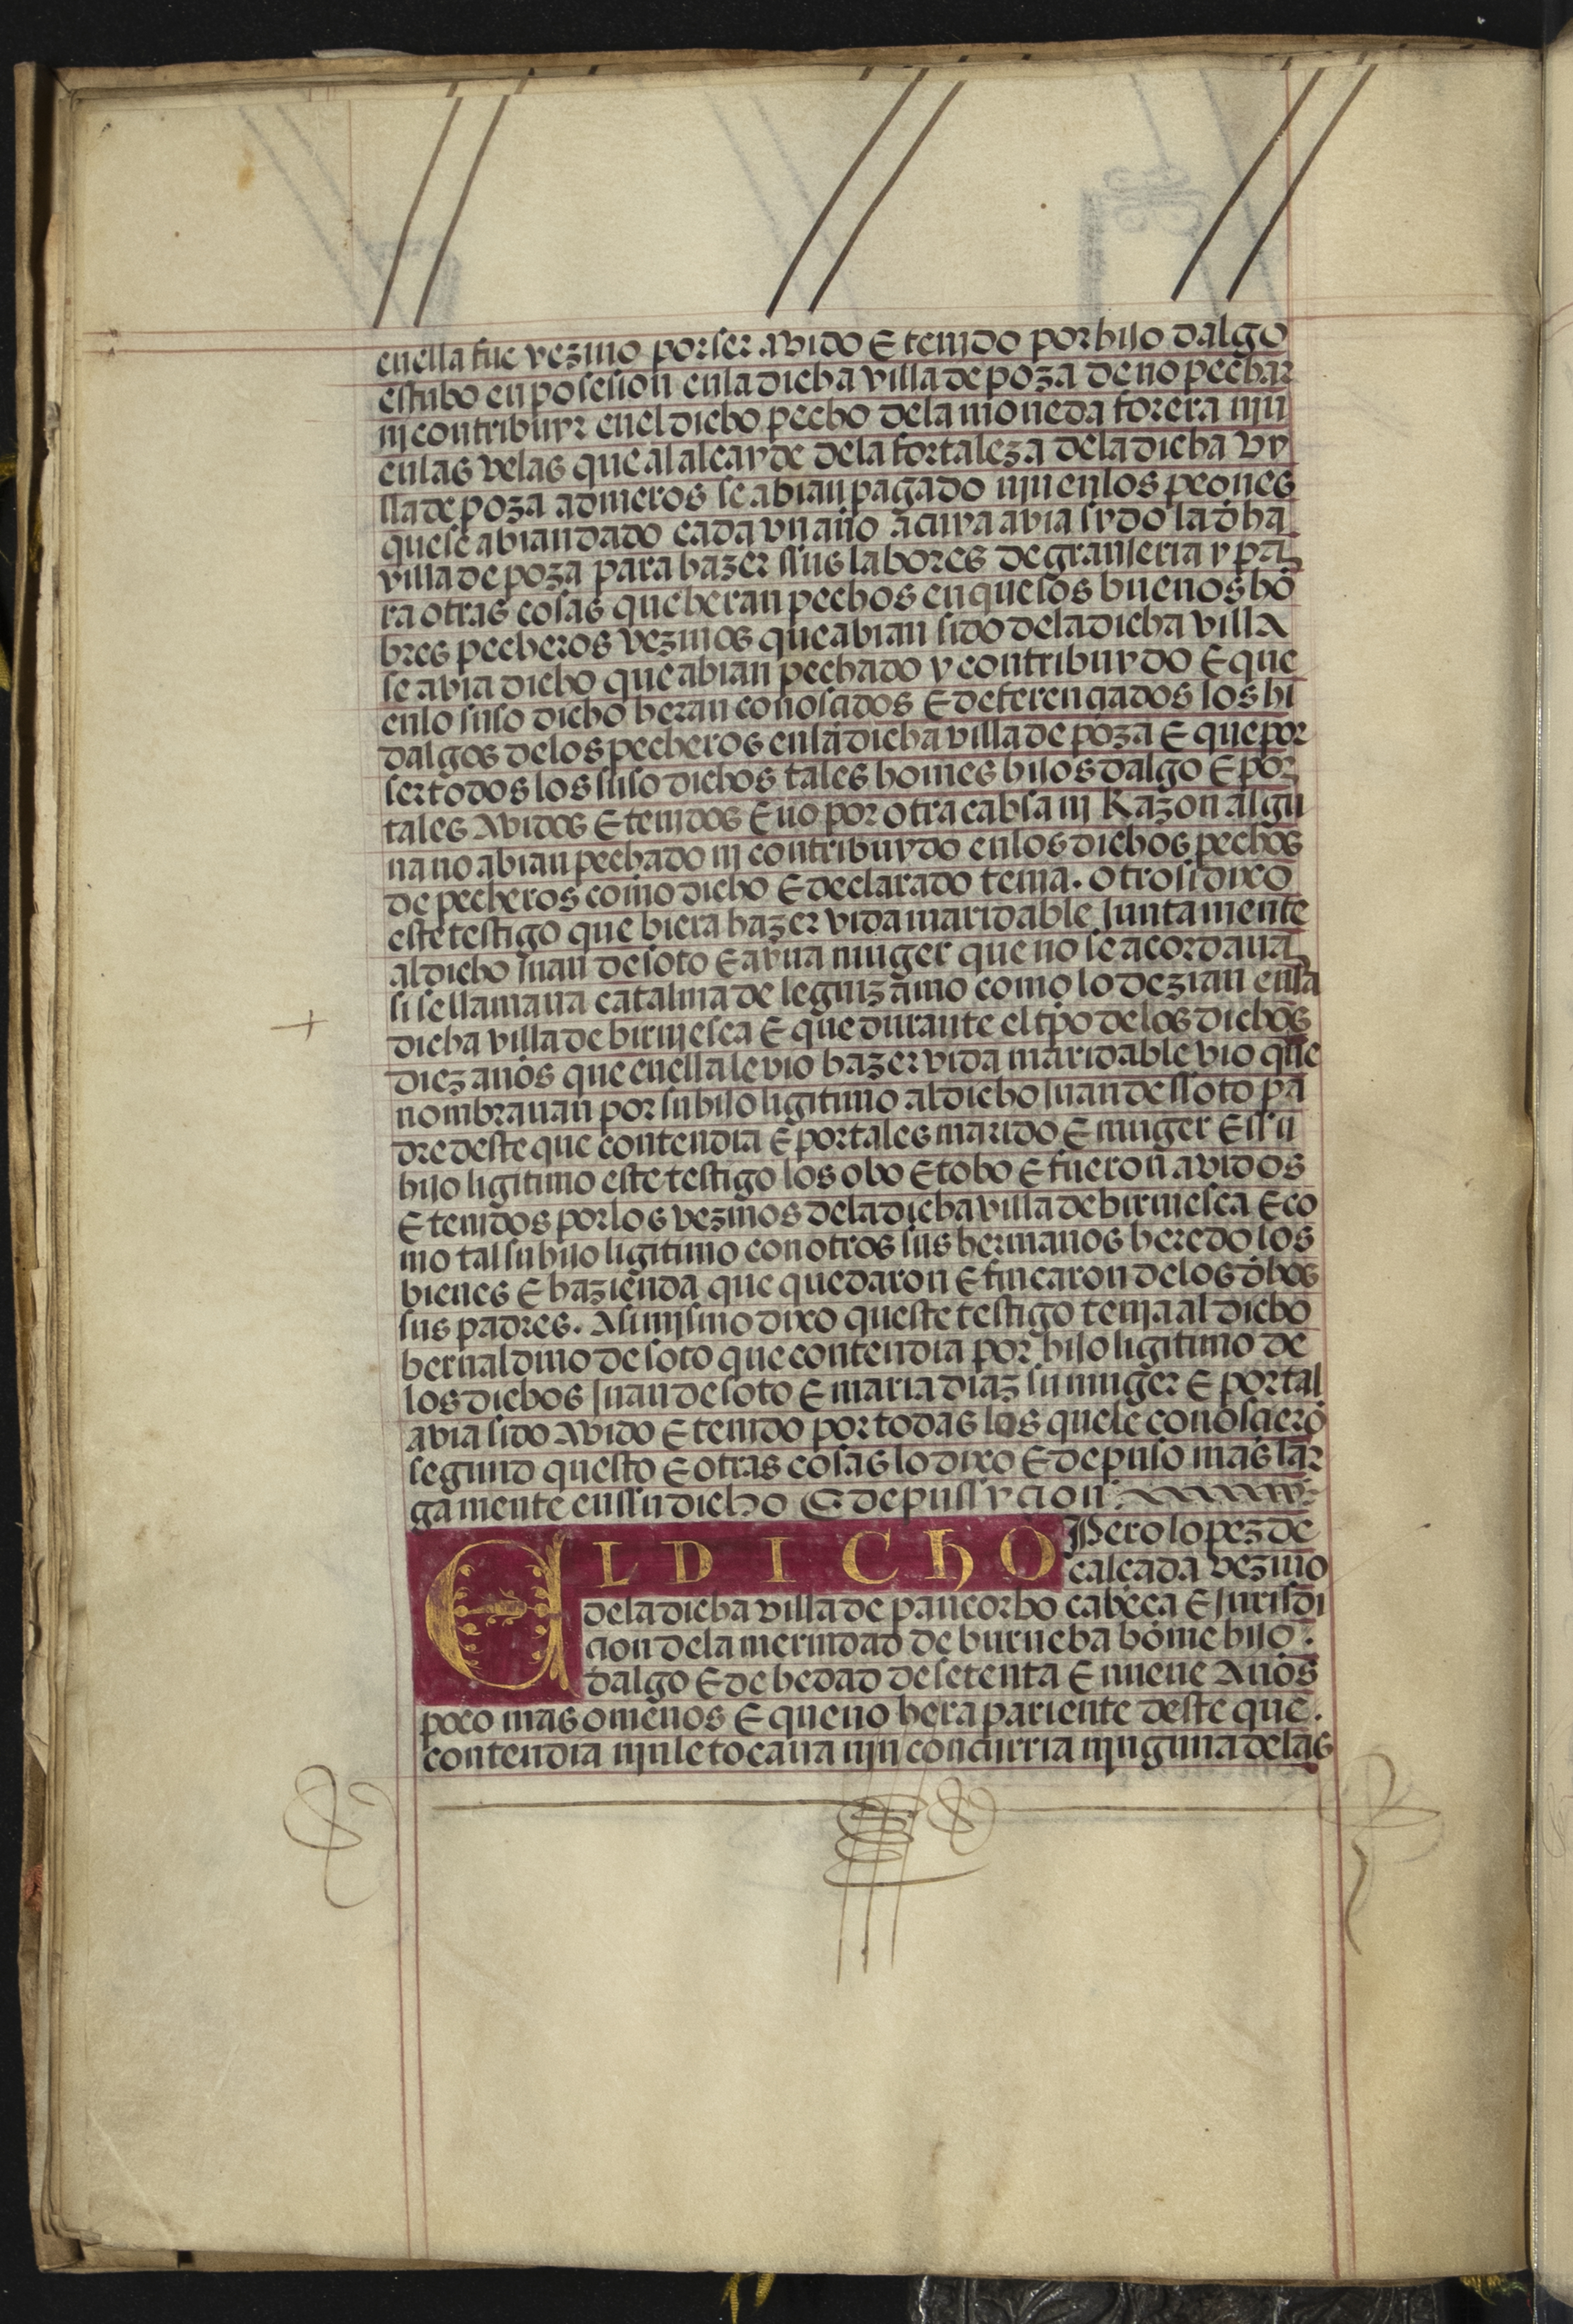 enella fue vezino por ser avido E tenido por hijo dalgo
estubo en posesion enla dicha villa de poza de no pechar
nj contribuyr enel dicho pecho dela moneda forera njn
enlas velas que al alcayde dela fortaleza dela dicha vy
lla de poza a dineros se abian pagado njn en los peones
que se abian dado cada vn año a cuya avia sydo la dha
villa de poza para hazer sus labores de granjeria y pa
ra otras cosas que heran pechos en que los buenos hõ
bres pecheros vezinos que abian sido dela dicha villa
se avia dicho que abian pechado y contribuydo E que
enlo suso dicho heran conoscidos E deferenciados los hi
dalgos delos pecheros enla dicha villa de poza E que por
ser todos los suso dichos tales homes hijos dalgo E por
tales avidos E tenidos E no por otra cabsa nj Razon algu
na no abian pechado nj contribuydo enlos dichos pechos
de pecheros como dicho E declarado tenia. otrosi dixo
este testigo que biera hazer vida maridable juntamente
al dicho juan de soto E a vna muger que no se acordaua
si se llamaua catalina de leguizamo como lo dezian enla
dicha villa de birvjesca E que durante el tpo delos dichos
diez años que enella le vio hazer vida maridable vio que
nombrauan por su hijo ligitimo al dicho juan de ssoto pa
dre deste que contendia E por tales marido E muger E ssu
hijo ligitimo este testigo los obo E tobo E fueron avidos
E tenidos por los vezinos dela dicha villa de birviesca E co
mo tal su hijo ligitimo con otros sus hermanos heredo los
bienes E hazienda que quedaron E fincaron delos dhos
sus padres. Asimjsmo dixo queste testigo tenja al dicho
bernaldino de soto que contendia por hijo ligitimo de
los dichos juan de soto E maria diaz su muger E por tal
avia sido avido E tenido por todas los que le conoscierõ
segund questo E otras cosas lo dixo E depuso mas lar
gamente en ssu dicho E depussycion
EL DICHO Pero lopez de
calçada vezino
dela dicha villa de pancorbo cabeça E jurisdi
cion dela merindad de burueba home hijo
dalgo E de hedad de setenta E nueue Años
poco mas o menos E que no hera pariente deste que
contendia njn le tocaua njn concurria njnguna delas